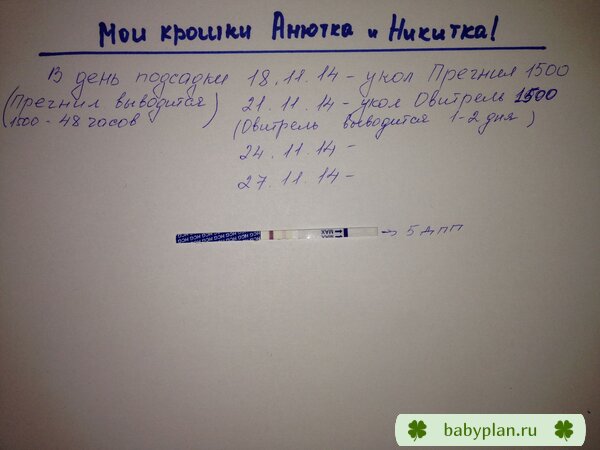 Мои крошки Анютка и Никитка!
В день подсадки 18.11.14 - укол Прегнил 1500
(Прегнил выводится 1500 - 48 часов)
21.11.14 - укол Овитрель 1500
(Овитрель выводится 1-2 дня)
24.11.14 -
27.11.14 -
HCG HCG HCG HCG HCG HCG
MAX
→ 5 дпп
babyplan.ru